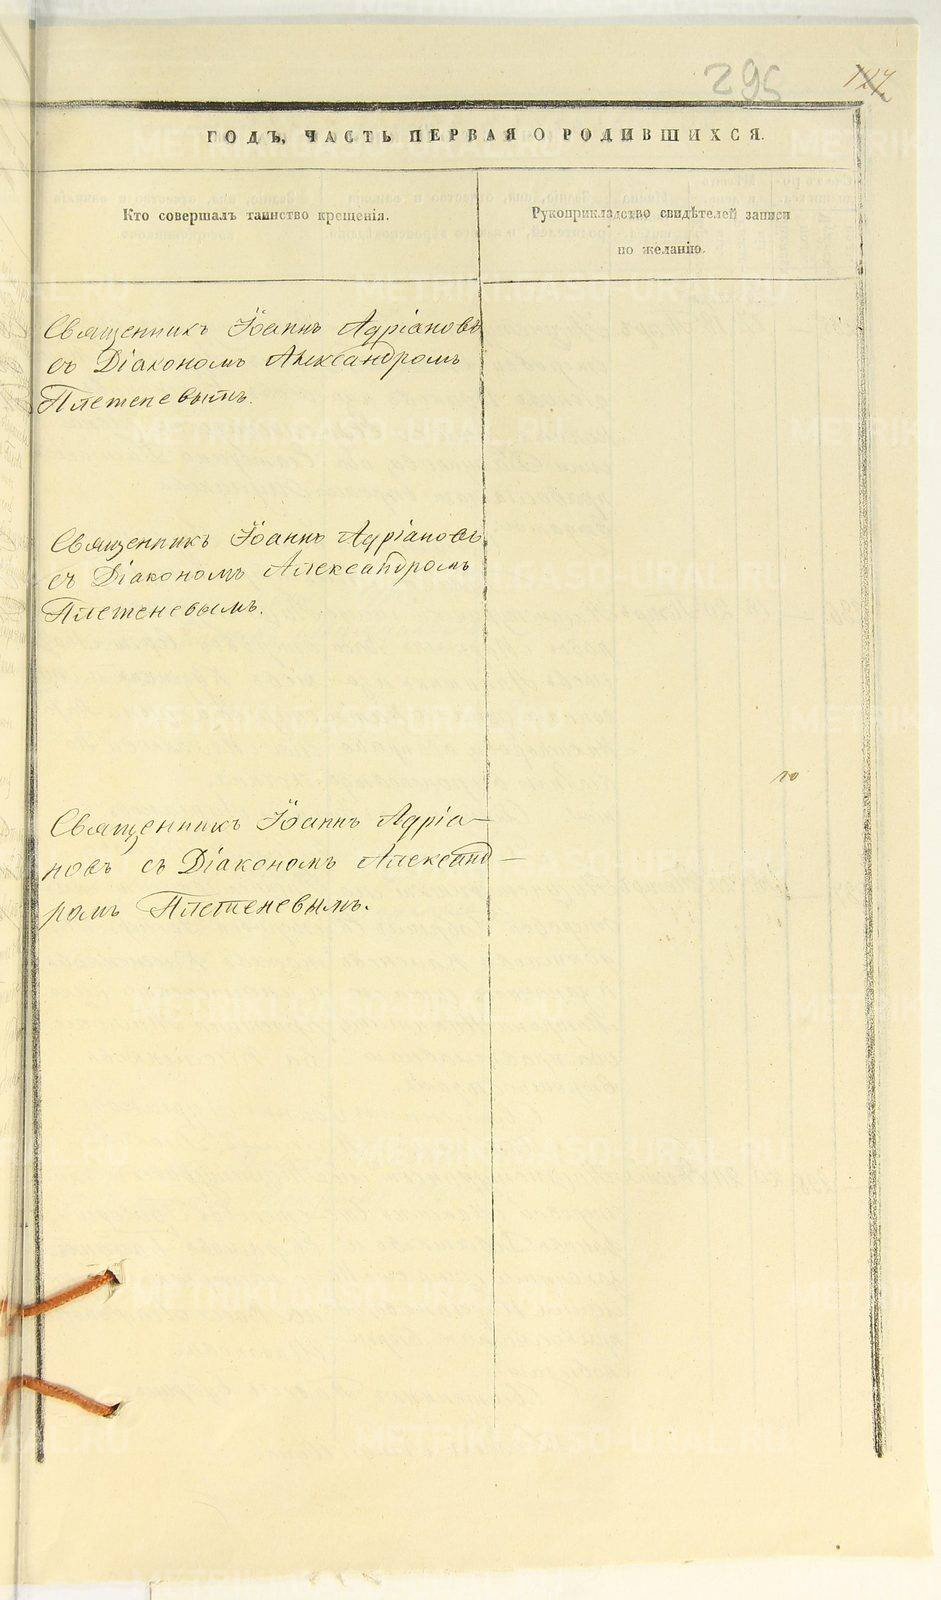 295
ГОДЪ, ЧАСТЬ ПЕРВАЯ О РОДИВШИХСЯ.
Кто совершалъ таинство крещенія.
Рукоприкладство свидѣтелей записи
по желанію.
Священникъ Іоаннъ Адріановъ
съ Діакономъ Александромъ
Плетеневымъ.
Священникъ Іоаннъ Адріановъ
съ Діакономъ Александромъ
Плетеневымъ.
Священникъ Іоаннъ Адріа-
новъ съ Діакономъ Александ-
ромъ Плетеневымъ.
METRIKI.GASO-URAL.RU